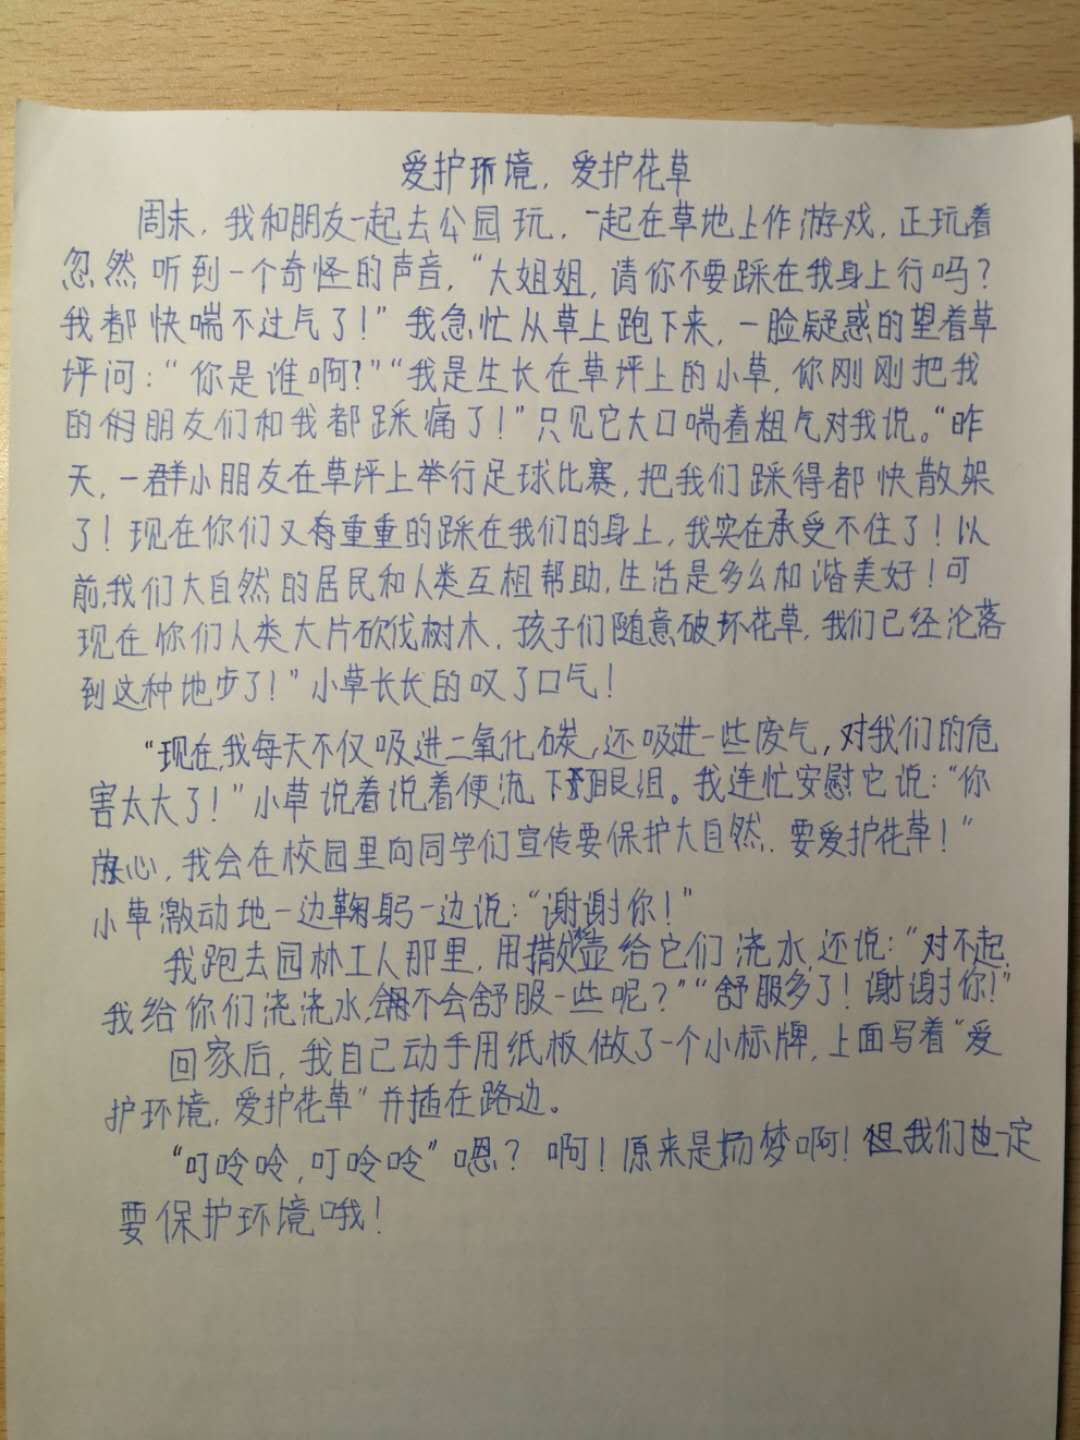 爱护环境，爱护花草
周末，我和朋友一起去公园玩，一起在草地上作游戏，正玩着
忽然听到一个奇怪的声音，“大姐姐，请你不要踩在我身上行吗？
我都快喘不过气了！”我急忙从草上跑下来，一脸疑惑的望着草
坪问：“你是谁啊？”“我是生长在草坪上的小草，你刚刚把我
的朋友们和我都踩痛了！”只见它大口喘着粗气对我说。“昨
天，一群小朋友在草坪上举行足球比赛，把我们踩得都快散架
了！现在你们又有重重的踩在我们的身上，我实在承受不住了！以
前，我们大自然的居民和人类互相帮助，生活是多么和谐美好！可
现在你们人类大片砍伐树木，孩子们随意破坏花草，我们已经沦落
到这种地步了！”小草长长的叹了口气！
“现在，我每天不仅吸进二氧化碳，还吸进一些废气，对我们的危
害太大了！”小草说着说着便流下了眼泪。我连忙安慰它说：“你
放心，我会在校园里向同学们宣传要保护大自然，要爱护花草！”
小草激动地一边鞠躬一边说：“谢谢你！”
我跑去园林工人那里，用壶给它们浇水，还说：“对不起，
我给你们浇浇水，会不会舒服一些呢？”“舒服多了！谢谢你！”
回家后，我自己动手用纸板做了一个小标牌，上面写着“爱
护环境，爱护花草”并插在路边。
“叮呤呤，叮呤呤”嗯？啊！原来是场梦啊！但我们也一定
要保护环境哦！